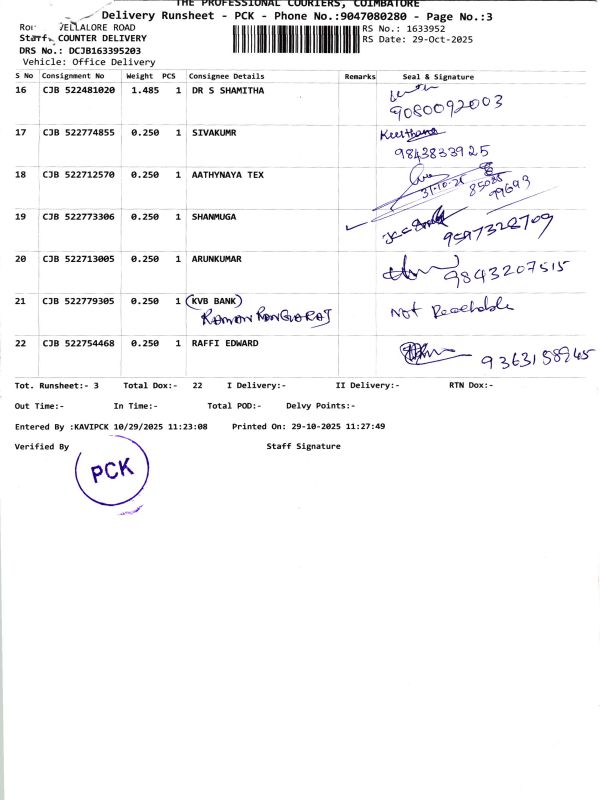 THE PROFESSIONAL COURIERS, COIMBATORE
Delivery Runsheet - PCK - Phone No.:9047080280 - Page No.:3
VELLALORE ROAD RS No.: 1633952
Staff: COUNTER DELIVERY RS Date: 29-Oct-2025
DRS No.: DCJB163395203
Vehicle: Office Delivery
S No Consignment No Weight PCS Consignee Details Remarks Seal & Signature
16 CJB 522481020 1.485 1 DR S SHAMITHA
9080092003
17 CJB 522774855 0.250 1 SIVAKUMR Keerthana
9843833925
18 CJB 522712570 0.250 1 AATHYNAYA TEX
31.10.25 85085
99693
19 CJB 522773306 0.250 1 SHANMUGA
9597328709
20 CJB 522713005 0.250 1 ARUNKUMAR
9843207515
21 CJB 522779305 0.250 1 (KVB BANK) Not Reachable
22 CJB 522754468 0.250 1 RAFFI EDWARD
9363158945
Tot. Runsheet:- 3 Total Dox:- 22 I Delivery:- II Delivery:- RTN Dox:-
Out Time:- In Time:- Total POD:- Delvy Points:-
Entered By :KAVIPCK 10/29/2025 11:23:08 Printed On: 29-10-2025 11:27:49
Verified By Staff Signature
PCK